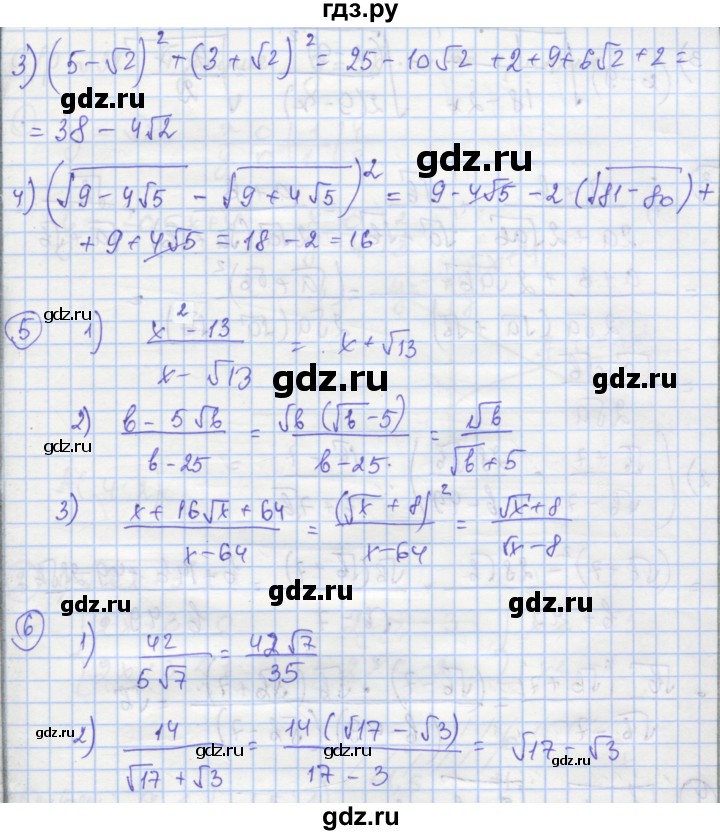 гдз.ру
3) (5 - √2)² + (3 + √2)² = 25 - 10√2 + 2 + 9 + 6√2 + 2 =
gdz.ru
gdz.ru
= 38 - 4√2
gdz.ru
4) (√(9 - 4√5) - √(9 + 4√5))² = 9 - 4√5 - 2(√(81 - 80)) +
gdz.ru
+ 9 + 4√5 = 18 - 2 = 16
gdz.ru
gdz.ru
5 1) (x² - 13)/(x - √13) = x + √13
gdz.ru
gdz.ru
2) (b - 5√b)/(b - 25) = √b(√b - 5)/(b - 25) = √b/(√b + 5)
gdz.ru
gdz.ru
3) (x + 16√x + 64)/(x - 64) = (√x + 8)²/(x - 64) = (√x + 8)/(√x - 8)
gdz.ru
gdz.ru
gdz.ru
6 1) 42/(5√7) = 42√7/35
gdz.ru
gdz.ru
2) 14/(√17 + √3) = 14(√17 - √3)/(17 - 3) = √17 - √3
gdz.ru
gdz.ru
gdz.ru
gdz.ru